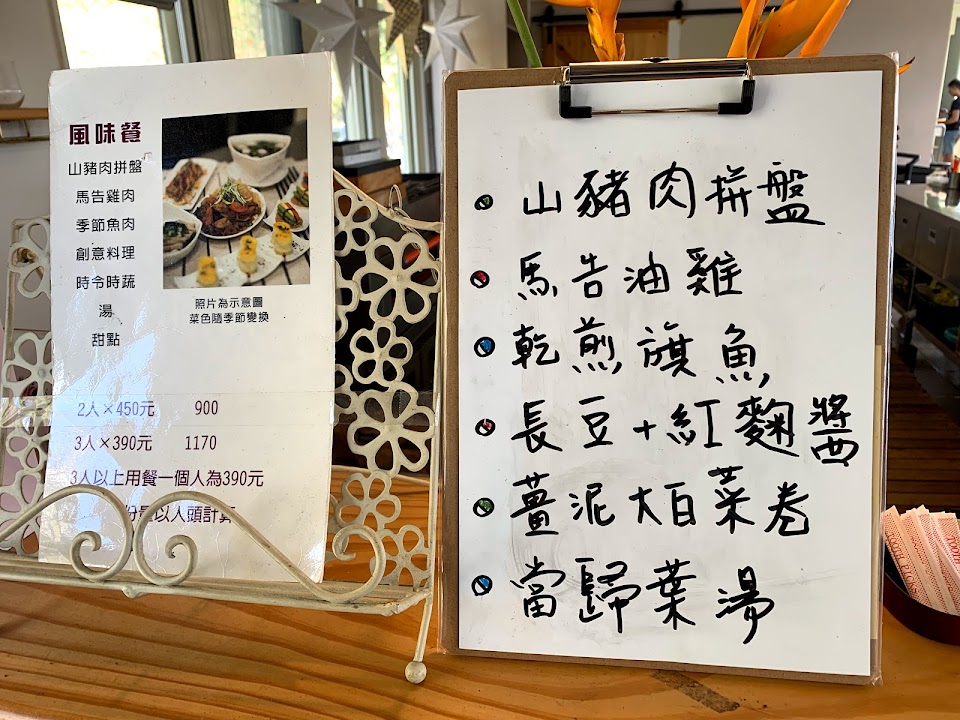 風味餐
山豬肉拼盤
馬告雞肉
季節魚肉
創意料理
時令時蔬
湯
甜點
照片為示意圖
菜色隨季節變換
2人×450元 900
3人×390元 1170
3人以上用餐一個人為390元
份量以人頭計算
山豬肉拼盤
馬告油雞
乾煎旗魚
長豆+紅麴醬
薑泥大白菜卷
當歸葉湯